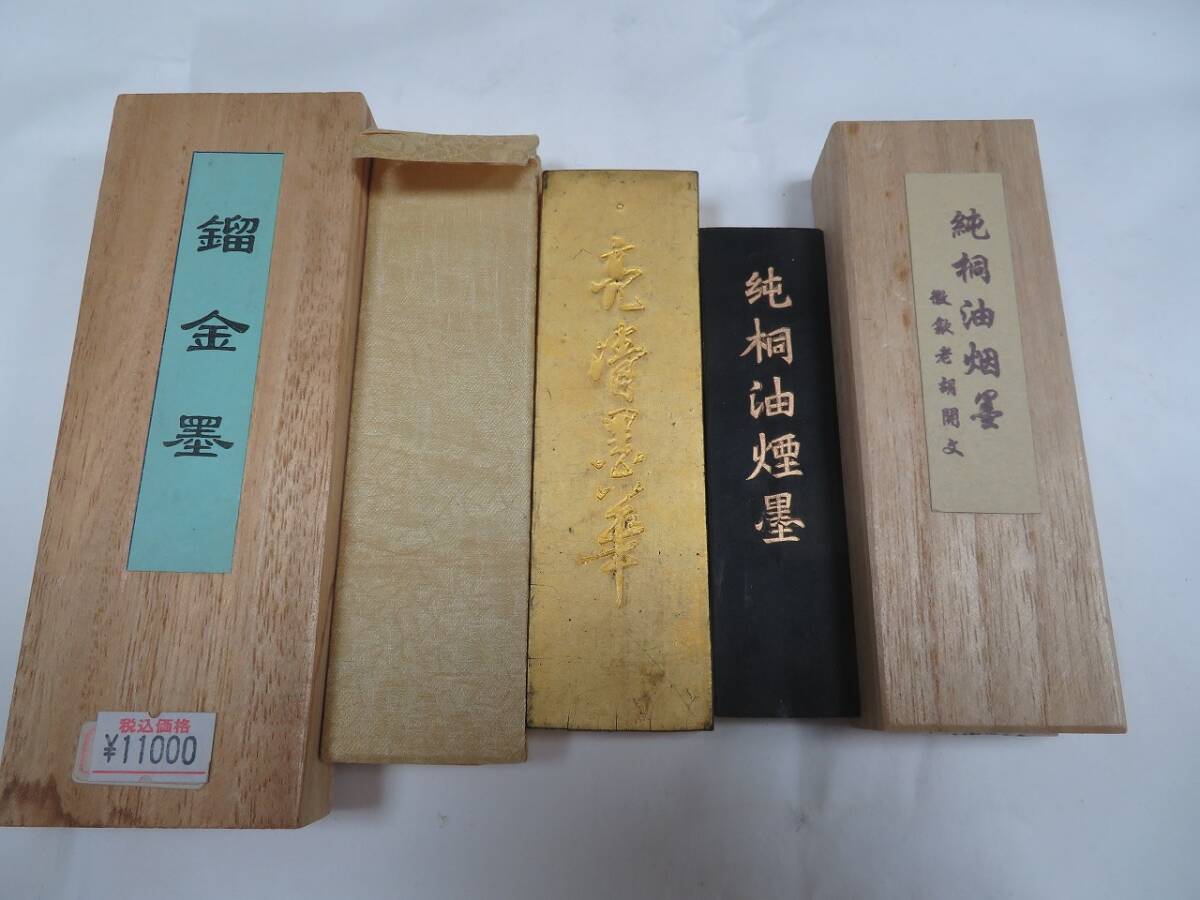 鎦金墨
税込価格
¥11000
墨華
纯桐油煙墨
純桐油烟墨
徽歙老胡開文